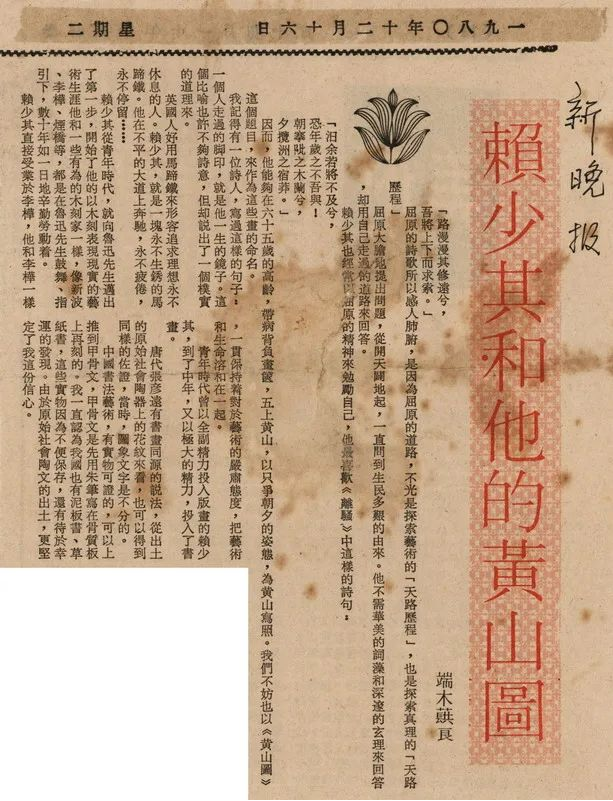 一九八〇年十二月十六日　星期二
新晚报
賴少其和他的黃山圖
端木蕻良
「路漫漫其修遠兮，
吾將上下而求索。」
屈原的詩歌所以感人肺腑，是因為屈原的道路，不光是探索藝術的「天路歷程」，也是探索真理的「天路
歷程」。
屈原大膽地提出問題，從開天闢地起，一直問到生民多艱的由來。他不需華美的詞藻和深邃的玄理來回答
，却用自己走過的道路來回答。
賴少其也經常以屈原的精神來勉勵自己，他最喜歡《離騷》中這樣的詩句：
「汨余若將不及兮，
恐年歲之不吾與！
朝搴阰之木蘭兮，
夕攬洲之宿莽。」
因而，他能夠在六十五歲的高齡，帶病背負畫篋，五上黃山，以只爭朝夕的姿態，為黃山寫照。我們不妨也以《黃山圖》
這個題目，來作為這些畫的命名。
我記得有一位詩人，寫過這樣的句子：
一個人走過的脚印，就是他一生的鏡子。這
個比喻也許不夠詩意，但却説出了一個樸實
的道理來。
英國人好用馬蹄鐵來形容追求理想永不
休息的人。賴少其，就是一塊永不生銹的馬
蹄鐵。他在不平的大道上奔馳，永不疲倦，
永不停留……
賴少其從青年時代，就向魯迅先生邁出
了第一步，開始了他的以木刻表現現實的藝
術生涯他和一些有為的木刻家一樣，像新波
、李樺、煙橋等，都是在魯迅先生鼓舞、指
引下，數十年如一日地辛勤勞動着。
賴少其直接受業於李樺，他和李樺一樣
，一貫保持着對於藝術的嚴肅態度，把藝術
和生命溶和在一起。
青年時代曾以全副精力投入版畫的賴少
其，到了中年，又以極大的精力，投入了書
畫。
唐代張彥遠有書畫同源的說法，從出土
的原始社會陶器上的花紋來看，也可以得到
同樣的佐證，當時，圖象文字是不分的。
中國書法藝術，有實物可證的，可以上
推到甲骨文，甲骨文是先用朱筆寫在骨質板
上再刻的。我一直認為我國也有泥板書、草
紙書，這些實物因為不便保存，還有待於幸
運的發現。由於原始社會陶文的出土，更堅
定了我這份信心。